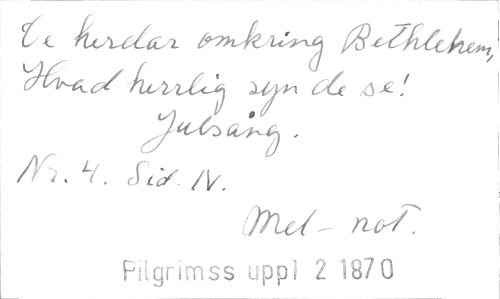 De herdar omkring Bethlehem,
Hvad herrlig syn de se!
Julsång.
Nr. 4. Sid. IV.
Mel-not.
Pilgrimss uppl 2 1870